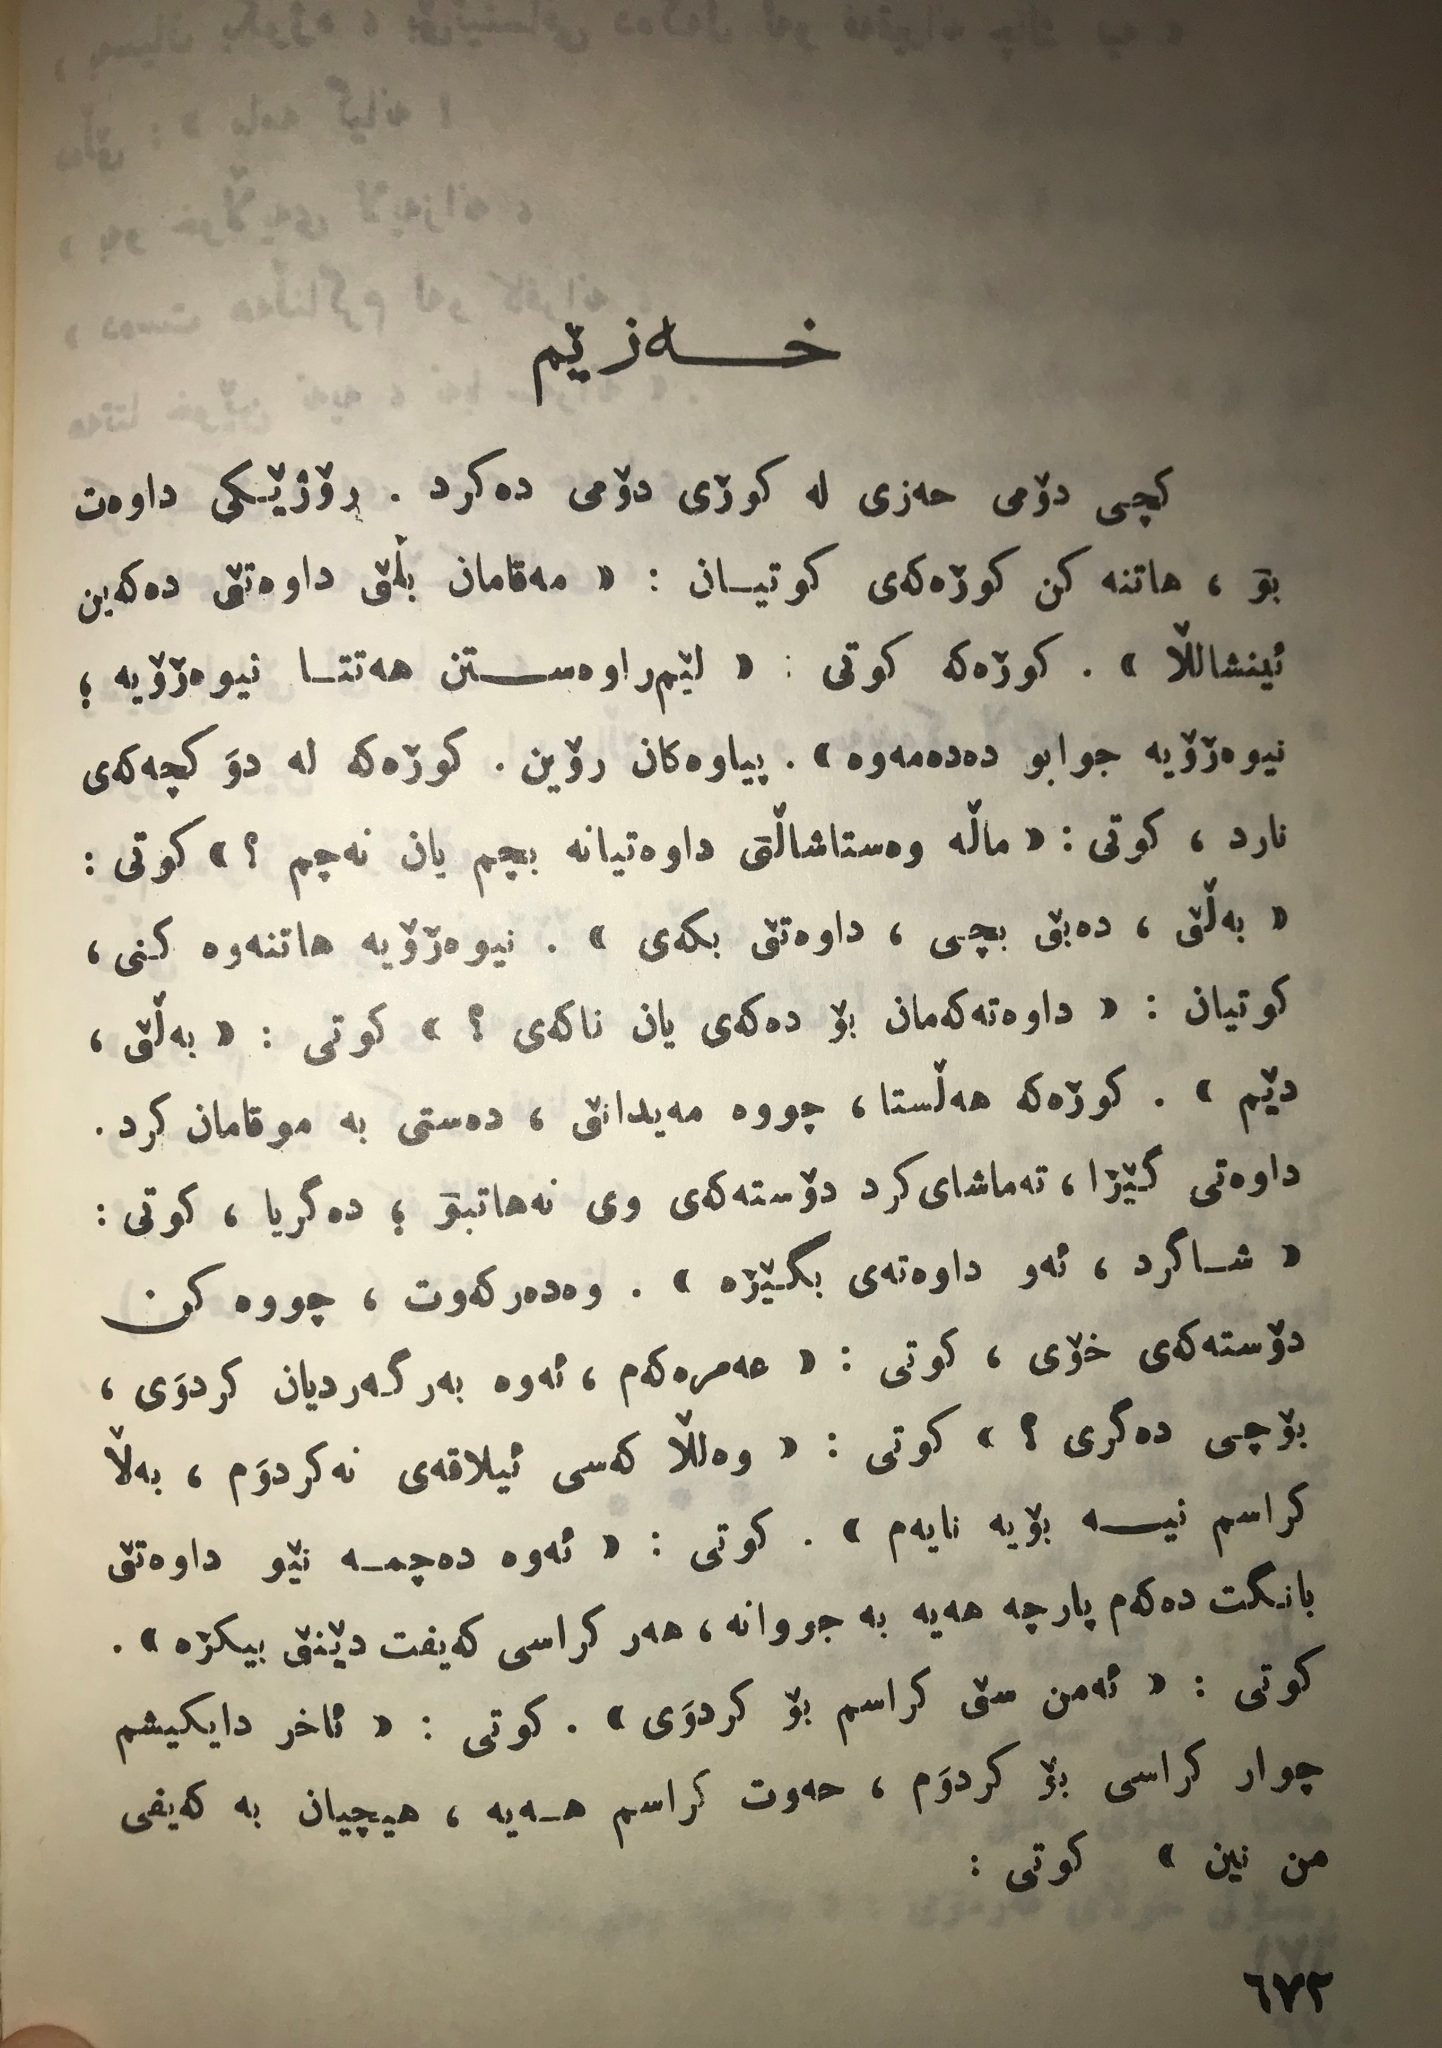 خـــەزێم
کچی دۆمی حەزی لە کوڕی دۆمی دەکرد . رۆژێـکی داوەت
بۆ ، هاتنە کن کوڕەکەی کوتیـان : « مەقامان بڵێ داوەتێ دەکەین
ئینشاڵڵا » . کوڕەکە کوتی : « لێم‌راوەســتن هەتتـا نیوەڕۆیە ؛
نیوەڕۆیە جوابو دەدەمەوە » . پیاوەکان رۆین . کوڕەکە لە دوَ کچەکەی
نارد ، کوتی : « ماڵە وەستاشاڵێ داوەتیانە بچم یان نەچم ؟ » کوتی :
« بەڵێ ، دەبێ بچـی ، داوەتێ بکەی » . نیوەڕۆیە هاتنەوە کـنی ،
کوتیان : « داوەتەکەمان بۆ دەکەی یان ناکەی ؟ » کوتی : « بەڵێ ،
دێم » . کوڕەکە هەڵستا ، چووە مەیدانێ ، دەستی بە موقامان کرد .
داوەتی گێڕا ، تەماشای‌کرد دۆستەکەی وی نەهاتبوَ ؛ دەگریا ، کوتی :
« شـاگرد ، ئەو داوەتەی بگـێڕە » . وەدەرکەوت ، چووە کن
دۆستەکەی خۆی ، کوتی : « عەمرەکەم ، ئەوە بەرگەردیان کردوَی ،
بۆچـی دەگری ؟ » کوتی : « وەڵڵا کەسی ئیلاقەی نەکردوَم ، بەڵا
کراسم نیــە بۆیە نایەم » . کوتی : « ئەوە دەچمـە نێو داوەتێ
بانگت دەکەم پارچە هەیە بە جووانە ، هەر کراسی کەیفت دێنێ بیکڕە » .
کوتی : « ئەمن سێ کراسم بۆ کردوَی » . کوتی : « ئاخر دایکیشم
چوار کراسی بۆ کردوَم ، حەوت کراسم هـەیە ، هیچیان بە کەیفی
من نین » کوتی :
٦٧٢